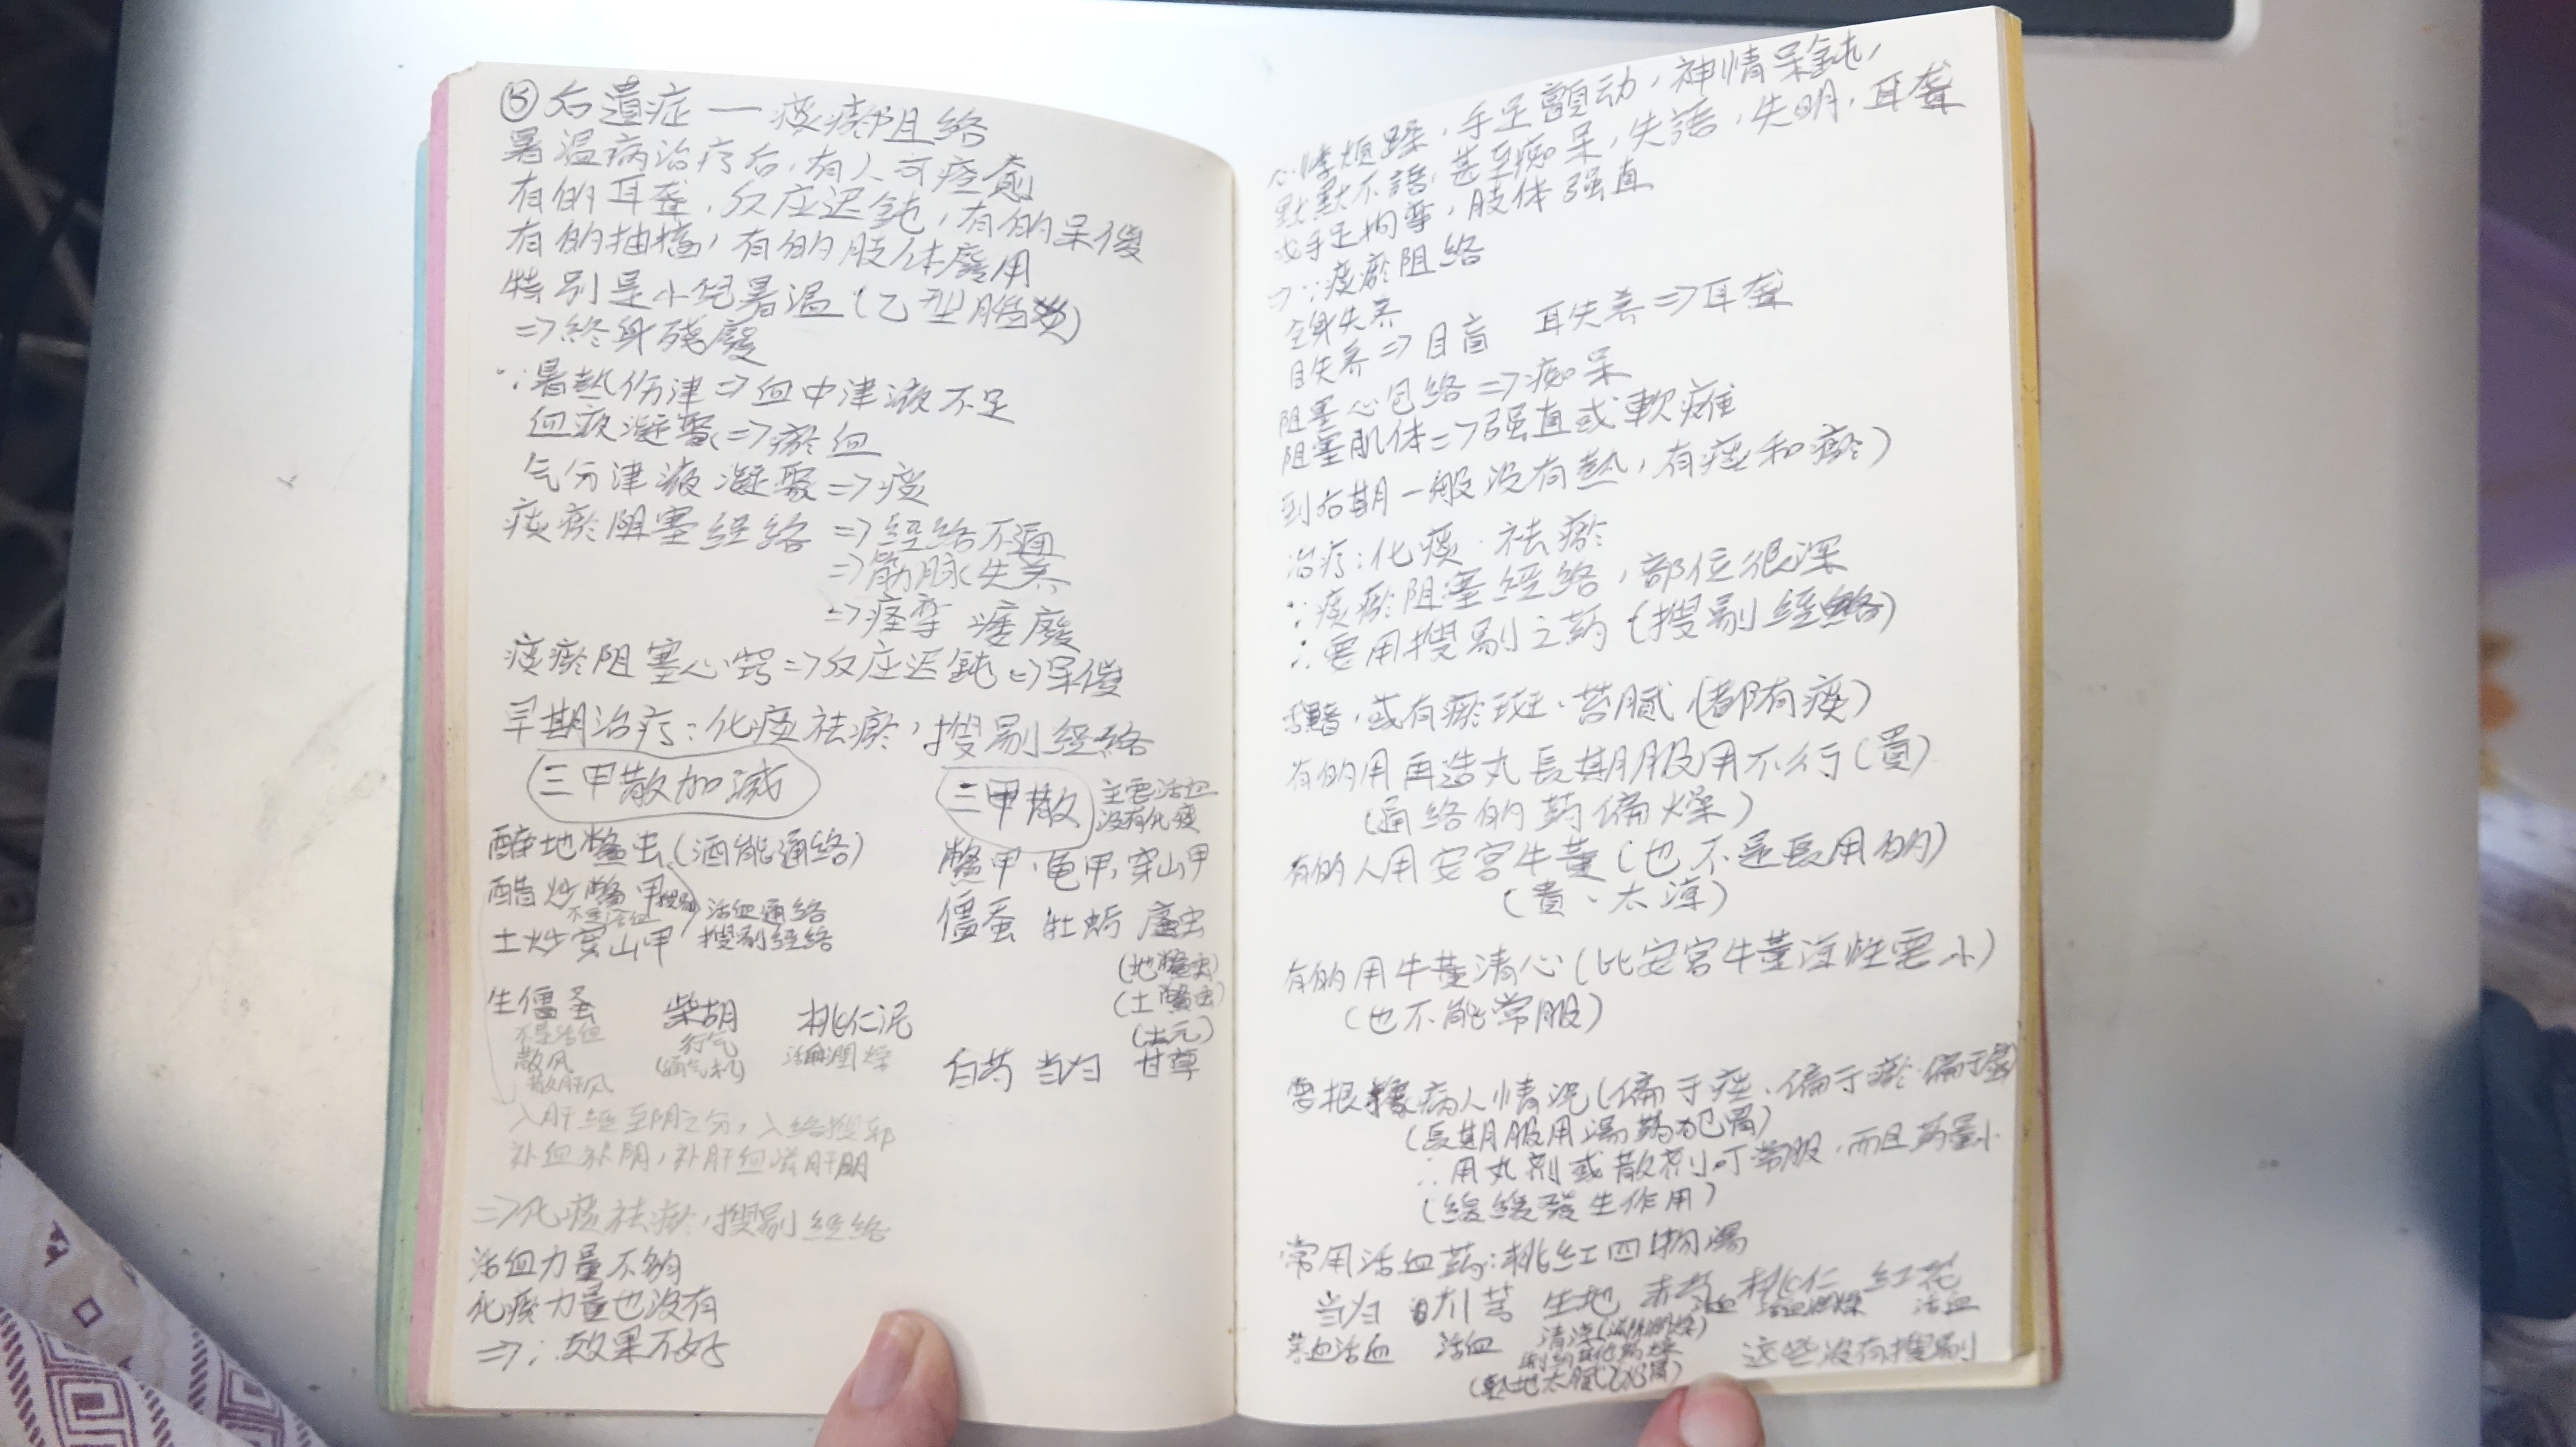 ⑤后遺症一痰瘀阻络
暑温病治疗后,有人可痊愈
有的耳聋,反应迟鈍,有的呆傻
有的抽搐,有的肢体廢用
特别是小兒暑温(乙型脑炎)
⇒終身殘廢
∵暑熱伤津⇒血中津液不足
血液凝聚⇒瘀血
气分津液凝聚⇒痰
痰瘀阻塞经络⇒经络不通
⇒筋脉失养
⇒痉挛 瘫廢
痰瘀阻塞心窍⇒反应迟鈍⇒呆傻
早期治疗:化痰祛瘀,搜剔经络
三甲散加减
醉地鳖虫(酒能通络)
醋炒鳖甲 搜剔
不是活血
土炒穿山甲
活血通络
搜剔经络
生僵蚕 柴胡 桃仁泥
不是活血
散风
散肝风
行气
(通气机)
活血潤燥
入肝经至阴之分,入络搜邪
补血补阴,补肝血滋肝阴
⇒化痰祛瘀,搜剔经络
活血力量不夠
化痰力量也没有
⇒∴效果不好
三甲散
主要活血
没有化痰
鳖甲、龟甲,穿山甲
僵蚕 牡蛎 䗪虫
(地鳖虫)
(土鳖虫)
(土元)
白芍 当归 甘草
心悸烦躁,手足顫动,神情呆鈍,
默默不語,甚至痴呆,失語,失明,耳聋
或手足拘挛,肢体强直
⇒∵痰瘀阻络
全身失养
目失养⇒目盲 耳失养⇒耳聋
阻塞心包络⇒痴呆
阻塞肌体⇒强直或軟瘫
到后期一般没有熱,有痰和瘀)
治疗:化痰、祛瘀
∵痰瘀阻塞经络,部位很深
∴要用搜剔之药(搜剔经络)
或有瘀斑、苔腻(都有痰)
有的用再造丸長期服用不行(貴)
(通络的药偏燥)
有的人用安宫牛黄(也不是長用的)
(貴、太凉)
有的用牛黄清心(比安宫牛黄凉性要小)
(也不能常服)
要根據病人情況(偏于痰、偏于瘀、偏于虚)
(長期服用湯药犯胃)
∴用丸剂或散剂可常服,而且药量小
(緩緩發生作用)
常用活血药:桃红四物湯
当归 川芎 生地 赤芍 桃仁 红花
养血活血 活血 活血 活血潤燥 活血
(熟地太腻 胃)
这些没有搜剔